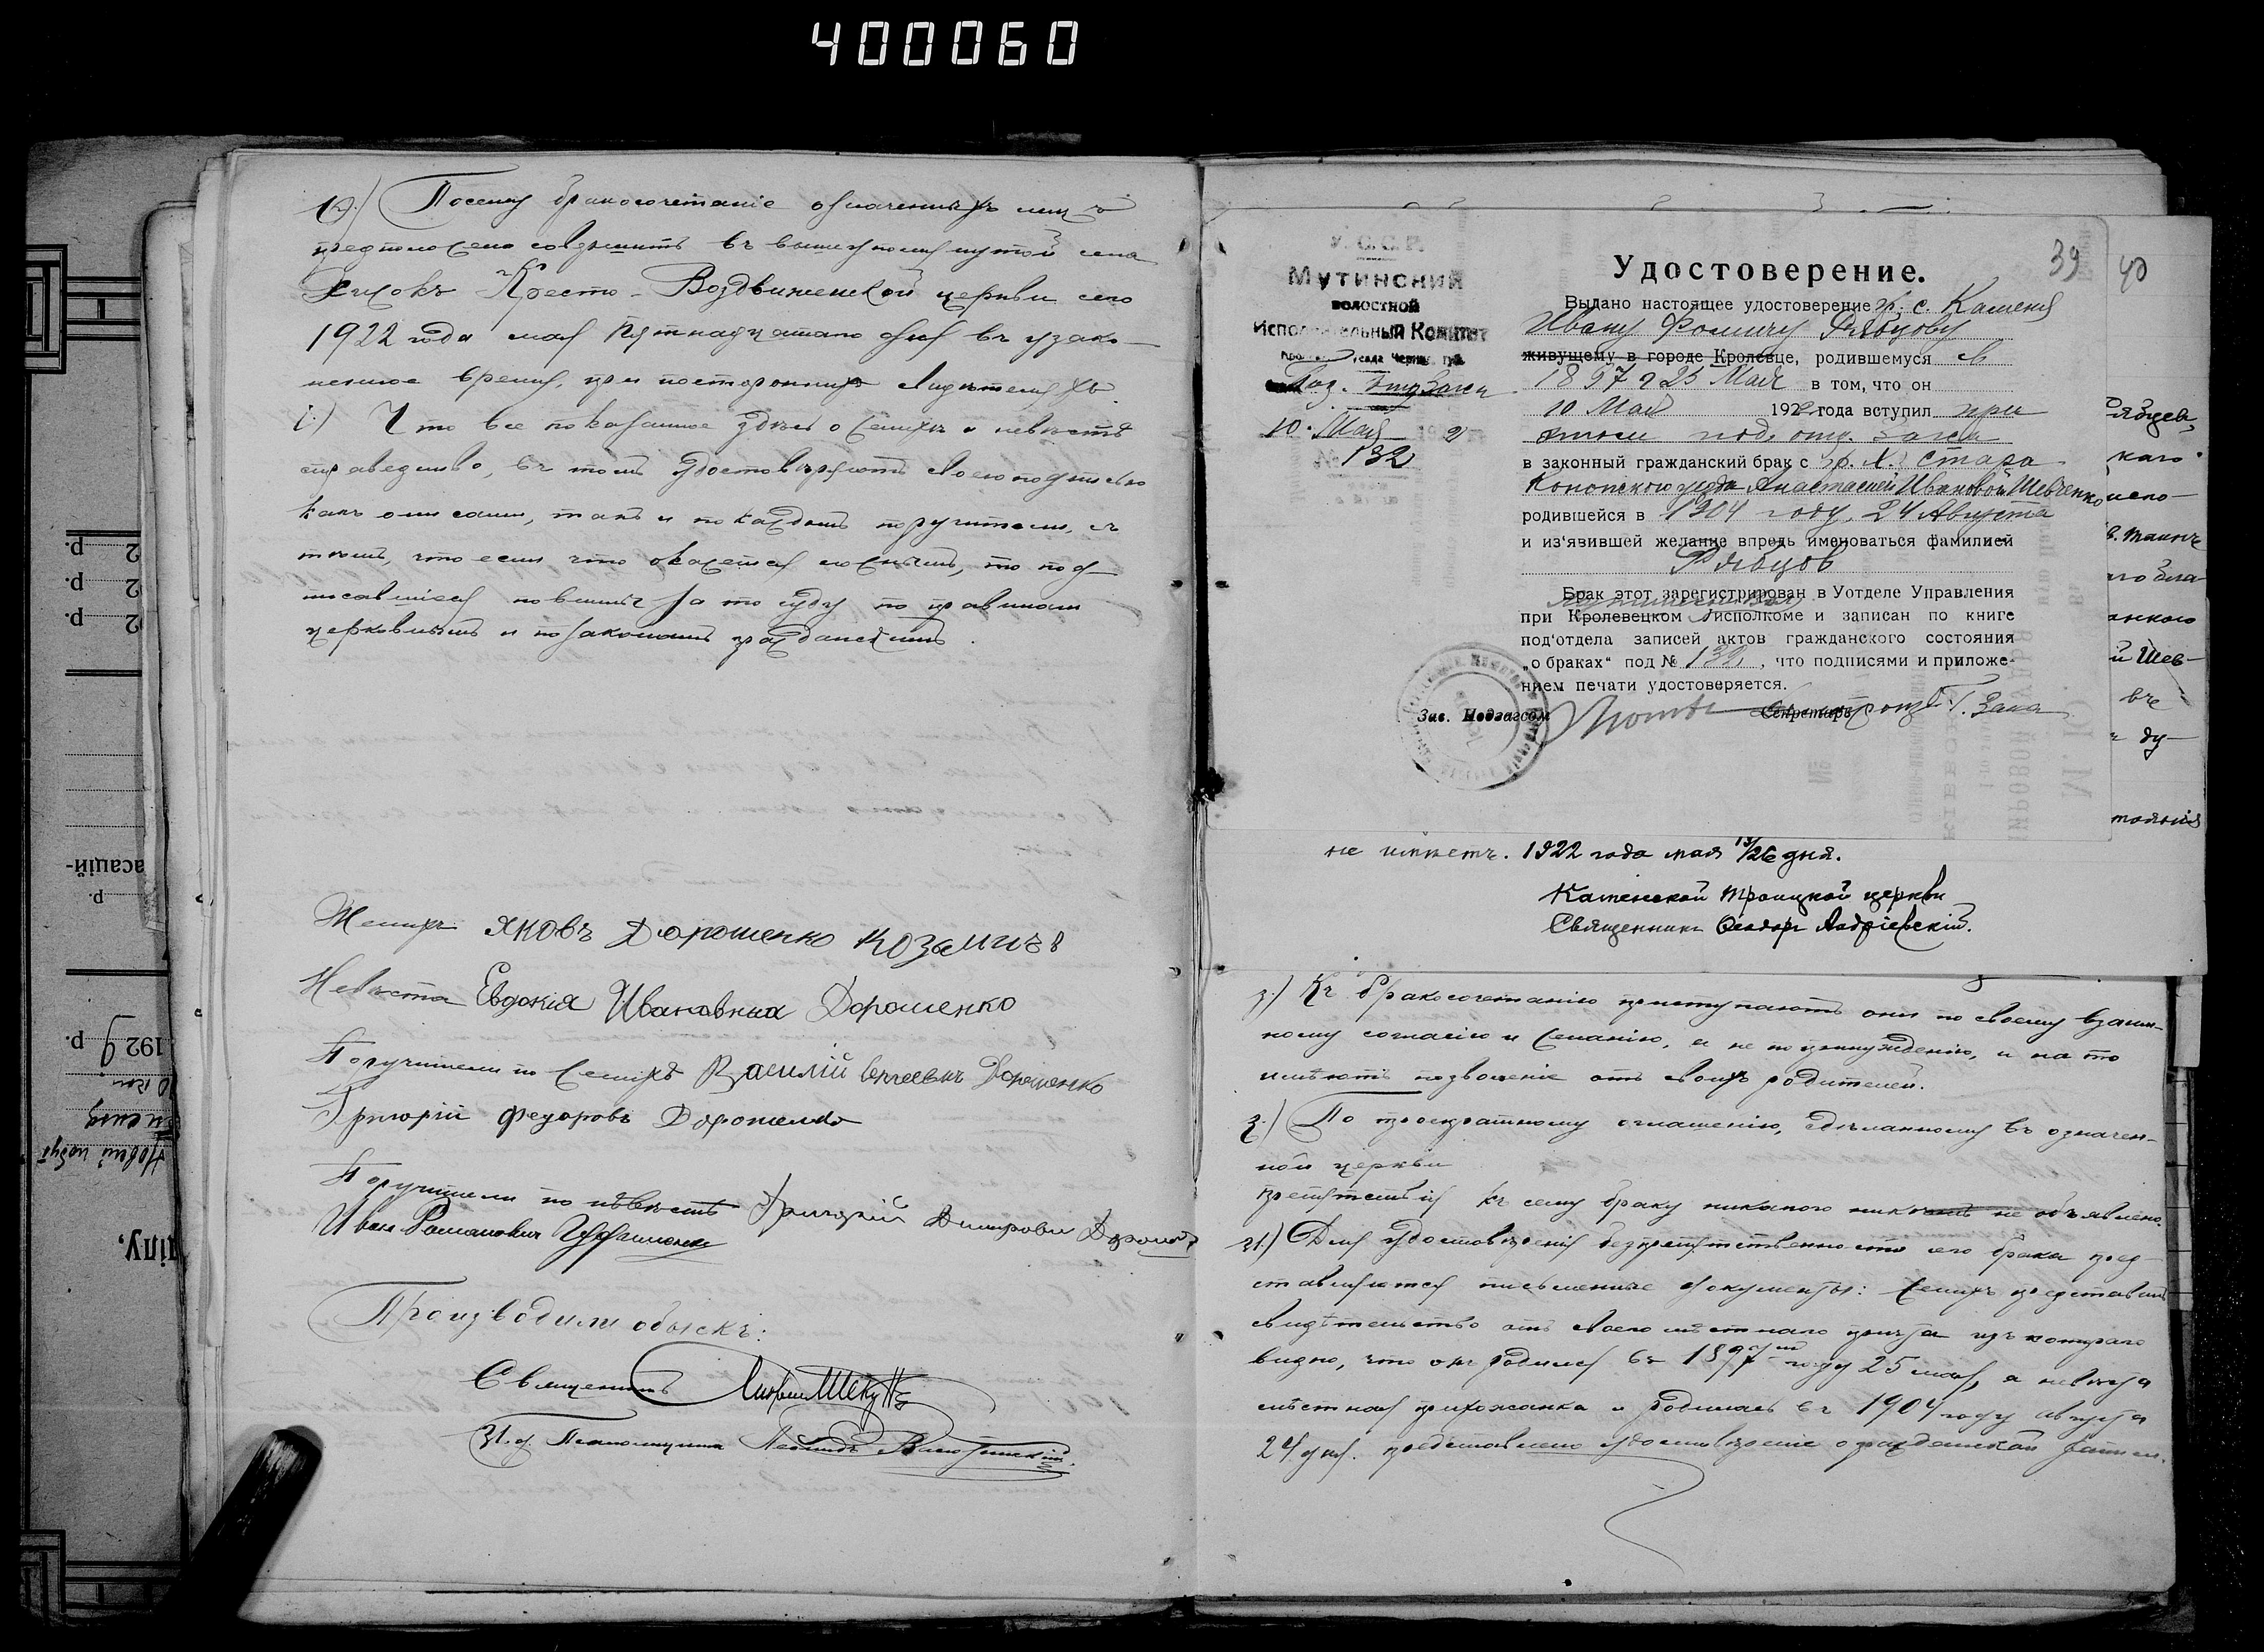 400060
Посему бракосочетаніе означенныхъ лицъ
предположено совершить въ вышеупомянутой села
Кресто-Воздвиженской церкви сего
1922 года мая Пятнадцатаго дня въ узако-
ненное время, при постороннихъ свидетеляхъ.
i) Что все показанное здѣсь о женихѣ и невѣстѣ
справедливо, въ томъ удостовѣряютъ своею подписью
какъ они сами, такъ и по каждомъ поручители, съ
тѣмъ, что если что окажется ложнымъ, то под-
писавшіеся повинны за то суду по правиламъ
церковнымъ и по законамъ гражданскимъ.
Женихъ Яковъ Дорошенко Козьмичъ
Невѣста Евдокія Ивановна Дорошенко
Поручители по женихѣ Василій Дорошенко
Григорій Федоровъ Дорошенко
Поручители по невѣстѣ Григорій
Иван Романович
Производили обыскъ:
Священникъ
Псаломщика Леонидъ
39
40
У.С.С.Р.
Мутинский
волостной
Исполнительный Комитет
10 Мая 2
№ 132
Удостоверение.
Выдано настоящее удостоверение гр. с. Каменя
Ивану Фомичу Рябцову
живущему в городе Кролевце, родившемуся в
1897 г 25 Мая в том, что он
10 Мая 1922 года вступил при
в законный гражданский брак с гр. х. Старо
Конопского Анастасией Ивановой Шевченко
родившейся в 1904 году, 24 Августа
и из'явившей желание впредь именоваться фамилией
Рябцов
Брак этот зарегистрирован в Уотделе Управления
при Кролевецком Уисполкоме и записан по книге
под'отдела записей актов гражданского состояния
„о браках“ под № 132, что подписями и приложе-
нием печати удостоверяется.
Зав. Подзагсом
Секретарь
Рябцев,
каго
аннаго
й Шев-
въ
ду-
не имѣетъ. 1922 года мая 13/26 дня.
Каменской Троицкой церкви
Священникъ Ѳеодоръ Андріевскій.
з) Къ бракосочетанію приступаютъ они по своему взаим-
ному согласію и желанію, а не по принужденію, и на то
имѣютъ позволеніе отъ своихъ родителей.
По троекратному оглашенію, сдѣланному въ означен-
ной церкви
препятствія къ сему браку никакого никѣмъ не объявлено.
Для удостовѣренія безпрепятственности сего брака пред-
ставляются письменные документы: женихъ представилъ
свидѣтельство отъ своего мѣстнаго причта изъ котораго
видно, что онъ родился въ 1897 году 25 мая, а невѣста
мѣстная прихожанка и родилась въ 1904 году августа
24 дня. представлено удостовѣреніе о гражданской